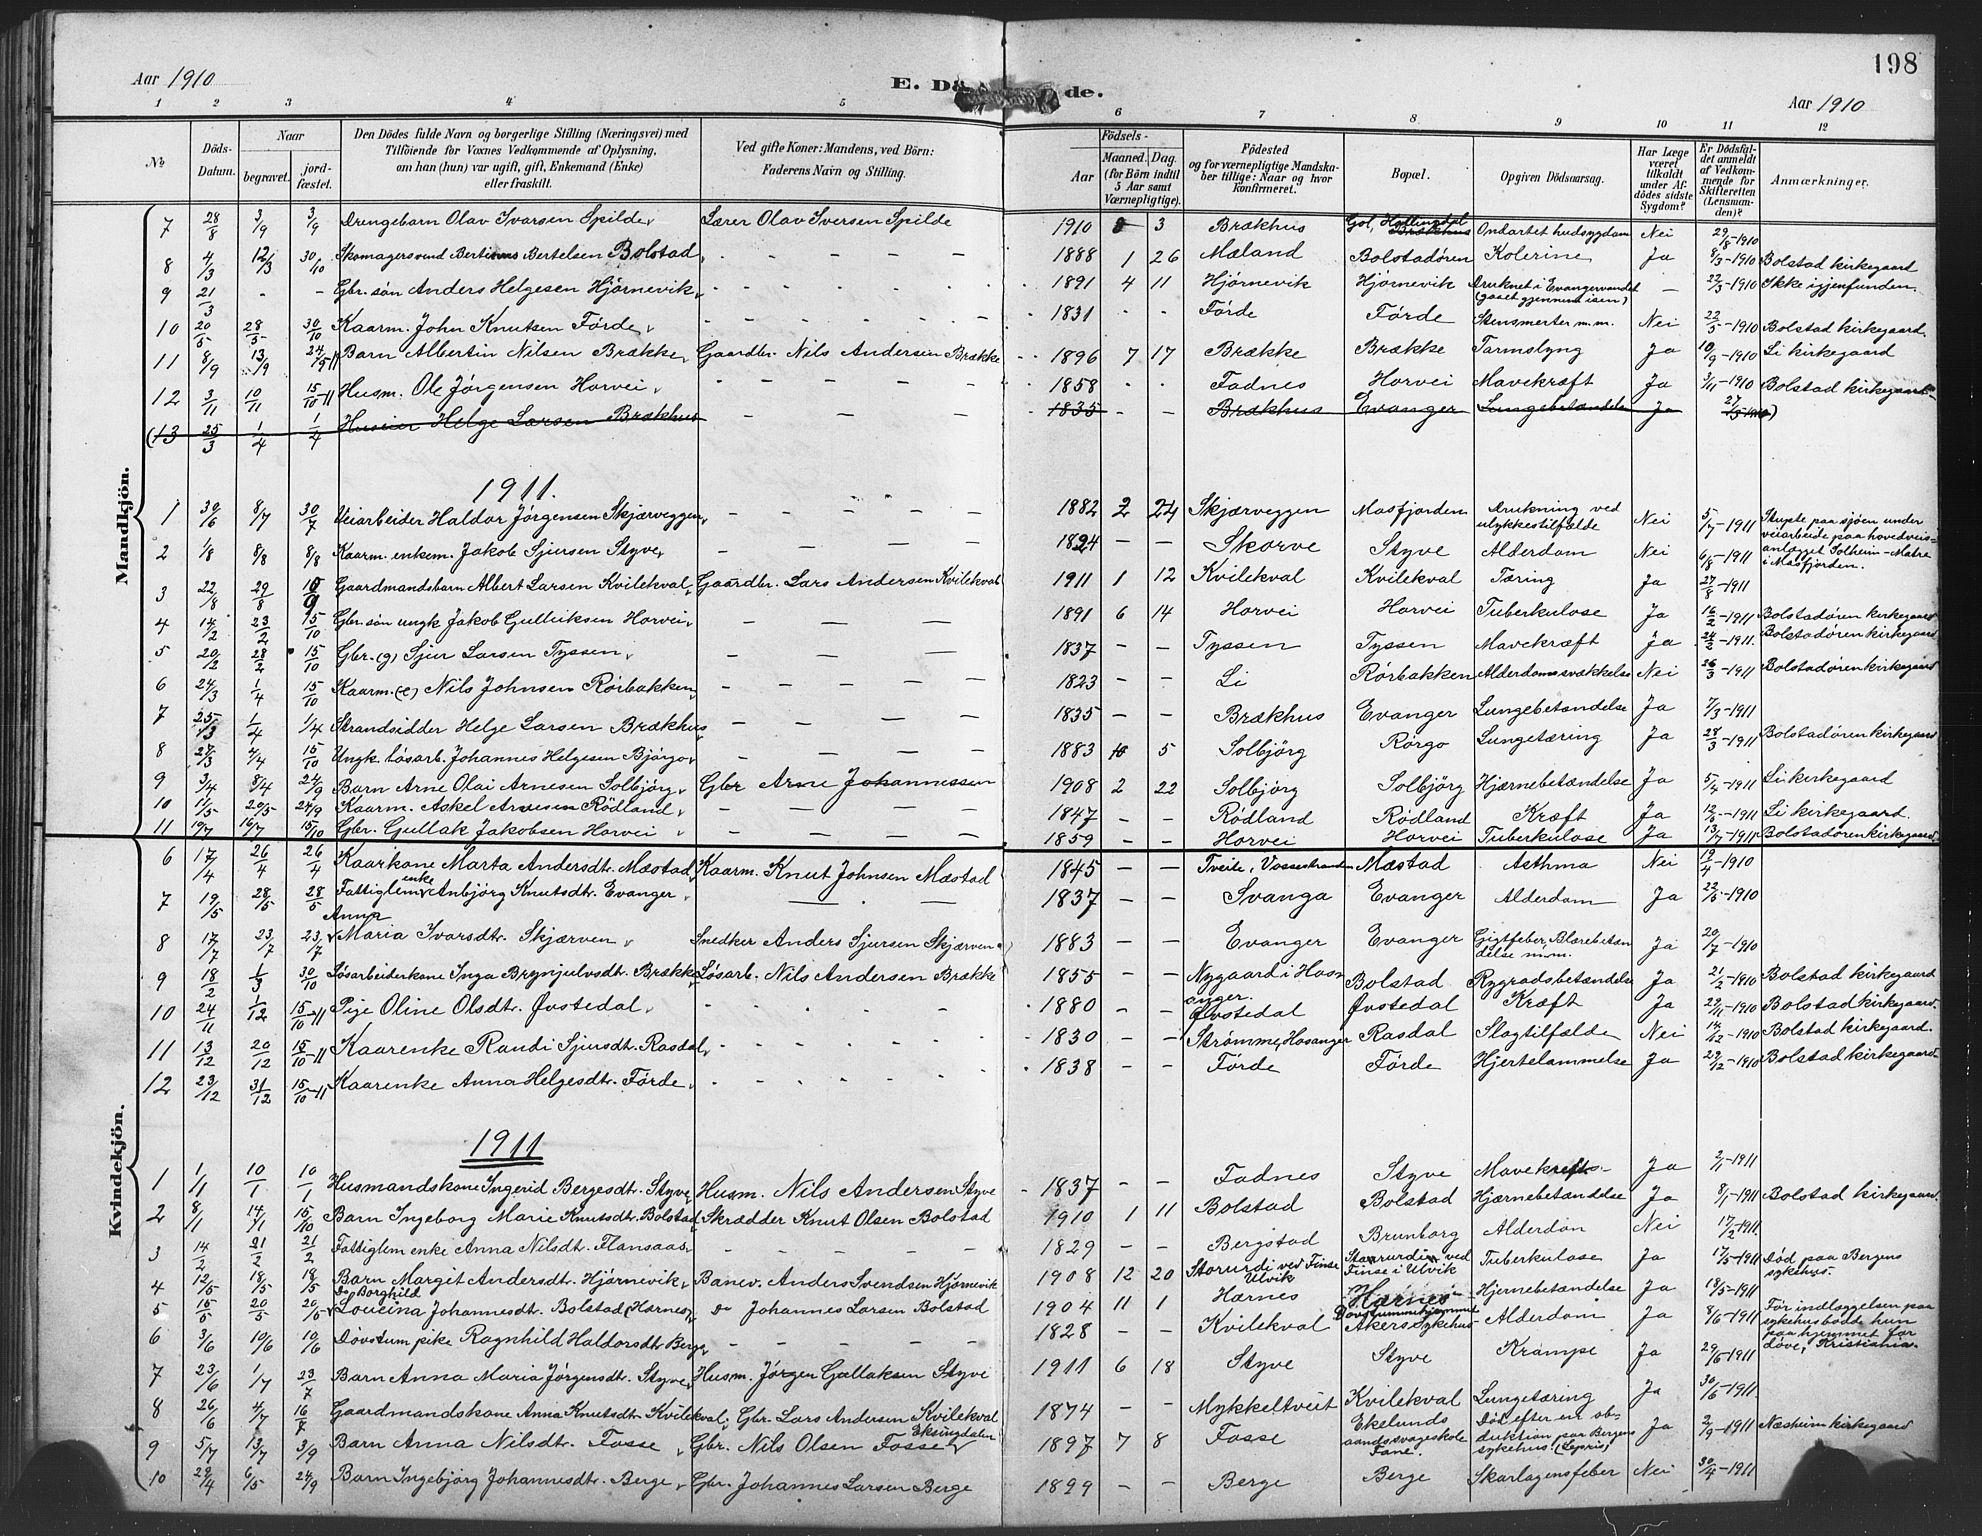 198
Aar 1910
E. Dø de.
Aar 1910
1 2 3 4 5 6 7 8 9 10 11 12
No
Döds-Datum.
Naar
begravet.
jord-fæstet.
Den Dödes fulde Navn og borgerlige Stilling (Næringsvei) med
Tilföiende for Voxnes Vedkommende af Oplysning,
om han (hun) var ugift, gift, Enkemand (Enke)
eller fraskilt.
Ved gifte Koner: Mandens, ved Börn:
Faderens Navn og Stilling.
Födsels-
Aar
Maaned. Dag.
(for Börn indtil
5 Aar samt
Værnepligtige).
Födested
og for værnepligtige Mandska-
ber tillige: Naar og hvor
konfirmeret.
Bopæl.
Opgiven Dödsaarsag.
Har Læge
været
tilkaldt
under Af-
dödes sidste
Sygdom?
Er Dödsfal-
det anmeldt
af Vedkom-
mende for
Skifteretten
(Lensman-
den)?
Anmærkninger.
Mandkjön.
7 28/8 3/9 3/9 Drengebarn Olav Ivarsen Spilde Lærer Olav Iversen Spilde 1910 8 3 Brækhus Gol, Hallingdal Brækhus Ondartet hudsygdom Nei 29/8-1910
8 4/3 12/3 30/10 Skomagersvend Bertinus Bertelsen Bolstad 1888 1 26 Mæland Bolstadören Kolerine Ja 9/3-1910 Bolstad kirkegaard
9 21/3 - - Gbr. sön Anders Helgesen Hjörnevik 1891 4 11 Hjörnevik Hjörnevik Druknet i Evangervandet (gaaet gjennem isen) - 22/3-1910 Ikke igjenfunden.
10 20/5 28/5 30/10 Kaarm. John Knutsen Förde 1831 Förde Förde Stensmerter m.m. Nei 22/5-1910 Bolstad kirkegaard.
11 8/9 13/9 24/9-11 Barn Albertin Nilsen Brække Gaardbr. Nils Andersen Brække 1896 7 17 Brække Brække Tarmslyng Ja 10/9-1910 Li kirkegaard
12 3/11 10/11 15/10-11 Husm. Ole Jörgensen Horvei 1858 Fadnes Horvei Mavekræft Ja 3/11-1910 Bolstad kirkegaard
(13 25/3 1/4 1/4 Huseier Helge Larsen Brækhus - - - 1835 - - Brækhus Evanger Lungebetændelse Ja 27/3-1910)
1911.
1 30/6 8/7 30/7 Veiarbeider Haldor Jörgensen Skjærveggen 1882 2 24 Skjærveggen Masfjorden Drukning ved ulykkestilfælde Nei 5/7-1911 Styrte paa sjöen under veiarbeide paa hovedveis-anlægget Solheim-Matre i Masfjorden.
2 1/8 8/8 8/8 Kaarm. enkem. Jakob Sjursen Styve 1824 - - Skorve Styve Alderdom Nei 6/8-1911
3 22/8 29/8 10/9 Gaardmandsbarn Albert Larsen Kvilekval Gaardbr. Lars Andersen Kvilekval 1911 1 12 Kvilekval Kvilekval Tæring Ja 27/8-1911
4 14/2 23/2 15/10 Gbr. sön ungk Jakob Gulleiksen Horvei 1891 6 14 Horvei Horvei Tuberkulose Ja 16/2-1911 Bolstadøren kirkegaard
5 20/2 28/2 15/10 Gbr. (g) Sjur Larsen Tyssen 1837 - - Tyssen Tyssen Mavekræft Ja 24/2-1911. Bolstadøren kirkegaard
6 24/3 1/4 15/10 Kaarm. (e) Nils Johnsen Rörbakken 1823 - - Li Rörbakken Alderdomssvækkelse Nei 26/3-1911 Bolstadøren kirkegaard
7 25/3 1/4 1/4 Strandsidder Helge Larsen Brækhus 1835 - - Brækhus Evanger Lungebetændelse Ja 7/3-1911
8 27/3 4/4 15/10 Ungk. lösarb. Johannes Helgesen Bjørgo 1883 10 5 Solbjörg Rörgo Lungetæring Ja 28/3-1911 Bolstadøren kirkegaard
9 3/4 8/4 24/9 Barn Arne Olai Arnesen Solbjörg Gbr Arne Johannessen 1908 2 22 Solbjörg Solbjörg Hjærnebetændelse Ja 5/4-1911 Li kirkegaard
10 11/5 20/5 24/9 Kaarm. Askel Arvesen Rödland 1847 - - Rödland Rödland Kræft Ja 12/5-1911 Li kirkegaard.
11 10/7 16/7 15/10 Gbr. Gullak Jakobsen Horvei 1859 - - Horvei Horvei Tuberkulose Ja 13/7-1911 Bolstadøren kirkegaard.
Kvindekjön.
6 17/4 26/4 26/4 Kaarkone Marta Andersdt. Mæstad Kaarm. Knut Johnsen Mæstad 1845 - - Tveite, Vossestranden Mæstad Asthma Nei 19/4-1910
7 19/5 28/5 28/5 Fattiglem enke Anbjörg Knutsdt. Evanger 1837 - - Svanga Evanger Alderdom Ja 22/5-1910
8 17/7 23/7 23/7 Anna Maria Ivarsdt. Skjærven Snedker Anders Sjursen Skjærven 1883 - - Evanger Evanger Gigtfeber, Blærebetændelse m.m. Ja 20/7-1910
9 18/2 1/3 30/10 Løsarbeiderkone Inga Brynjulvsdt. Brække Løsarb. Nils Andersen Brække 1855 - - Nygaard i Hosanger. Bolstad Rygradsbetændelse Ja 21/2-1910 Bolstad kirkegaard
10 24/11 1/12 15/10-11 Pige Oline Olsdt. Øvstedal 1880 - - Øvstedal Øvstedal Kræft Ja 29/11-1910 Bolstad kirkegaard.
11 13/12 20/12 15/10-11 Kaarenke Randi Sjursdt. Rasdal 1830 - - Strømme, Hosanger Rasdal Slagtilfælde Nei 14/12-1910 Bolstad kirkegaard.
12 23/12 31/12 15/10-11 Kaarenke Anna Helgesdt. Förde 1838 - - Förde Förde Hjertelammelse Ja 29/12-1910 Bolstad kirkegaard
1911
1 1/1 10/1 10/1 Husmandskone Ingerid Bergesdt. Styve Husm. Nils Andersen Styve 1837 - - Fadnes Styve Mavekræft Ja 2/1-1911
2 8/1 14/1 15/10 Barn Ingeborg Marie Knutsdt. Bolstad Skrædder Knut Olsen Bolstad 1910 1 11 Bolstad Bolstad Hjærnebetændelse Ja 8/1-1911 Bolstad kirkegaard.
3 14/2 21/2 21/2 Fattiglem enke Anna Nilsdt. Flansaas 1829 - - Bergstad Brunborg Alderdom Nei 17/2-1911.
4 12/5 18/5 19/5 Barn Margit Andersdt. Hjørnevik Banev. Anders Svendsen Hjørnevik 1908 12 20 Storurdi ved Finse Ulvik Storurdi ved Finse i Ulvik Tuberkulose Ja 17/5-1911 Død paa Bergens sykehus.
5 15/5 20/5 20/5 Do Borghild Lovina Johannesdt. Bolstad (Hærnes) Do Johannes Larsen Bolstad 1904 11 1 Hærnes Hærnes Hjernebetændelse Ja 18/5-1911
6 3/6 10/6 10/6 Døvstum pike Ragnhild Haldorsdt Berge 1828 - - Kvilekval Døvstummehjemmet Akers sykehus Alderdom Ja 8/6-1911 Før indlæggelsen paa sykehus bodde hun paa hjemmet for døve, Kristiania.
7 23/6 1/7 23/7 Barn Anna Maria Jörgensdt. Styve Husm. Jörgen Gullaksen Styve 1911 6 18 Styve Styve Krampe Ja 29/6-1911
8 26/6 4/7 16/7 Gaardmandskone Anna Knutsdt Kvilekval Gbr. Lars Andersen Kvilekval 1874 - - Mykkeltveit Kvilekval Lungetæring Ja 30/6-1911
9 5/7 13/7 3/9 Barn Anna Nilsdt. Fosse Gbr. Nils Olsen Fosse Eksingdalen 1897 7 8 Fosse Ekelunds aandssvageskole Fane. Død efter en obduktion paa Bergens sykehus (Lepris) Ja 2/9-1911 Næsheim kirkegaard
10 29/4 6/5 24/9 Barn Ingebjörg Johannesdt. Berge Gbr. Johannes Larsen Berge 1899 - - Berge Berge Skarlagensfeber Nei 30/4-1911